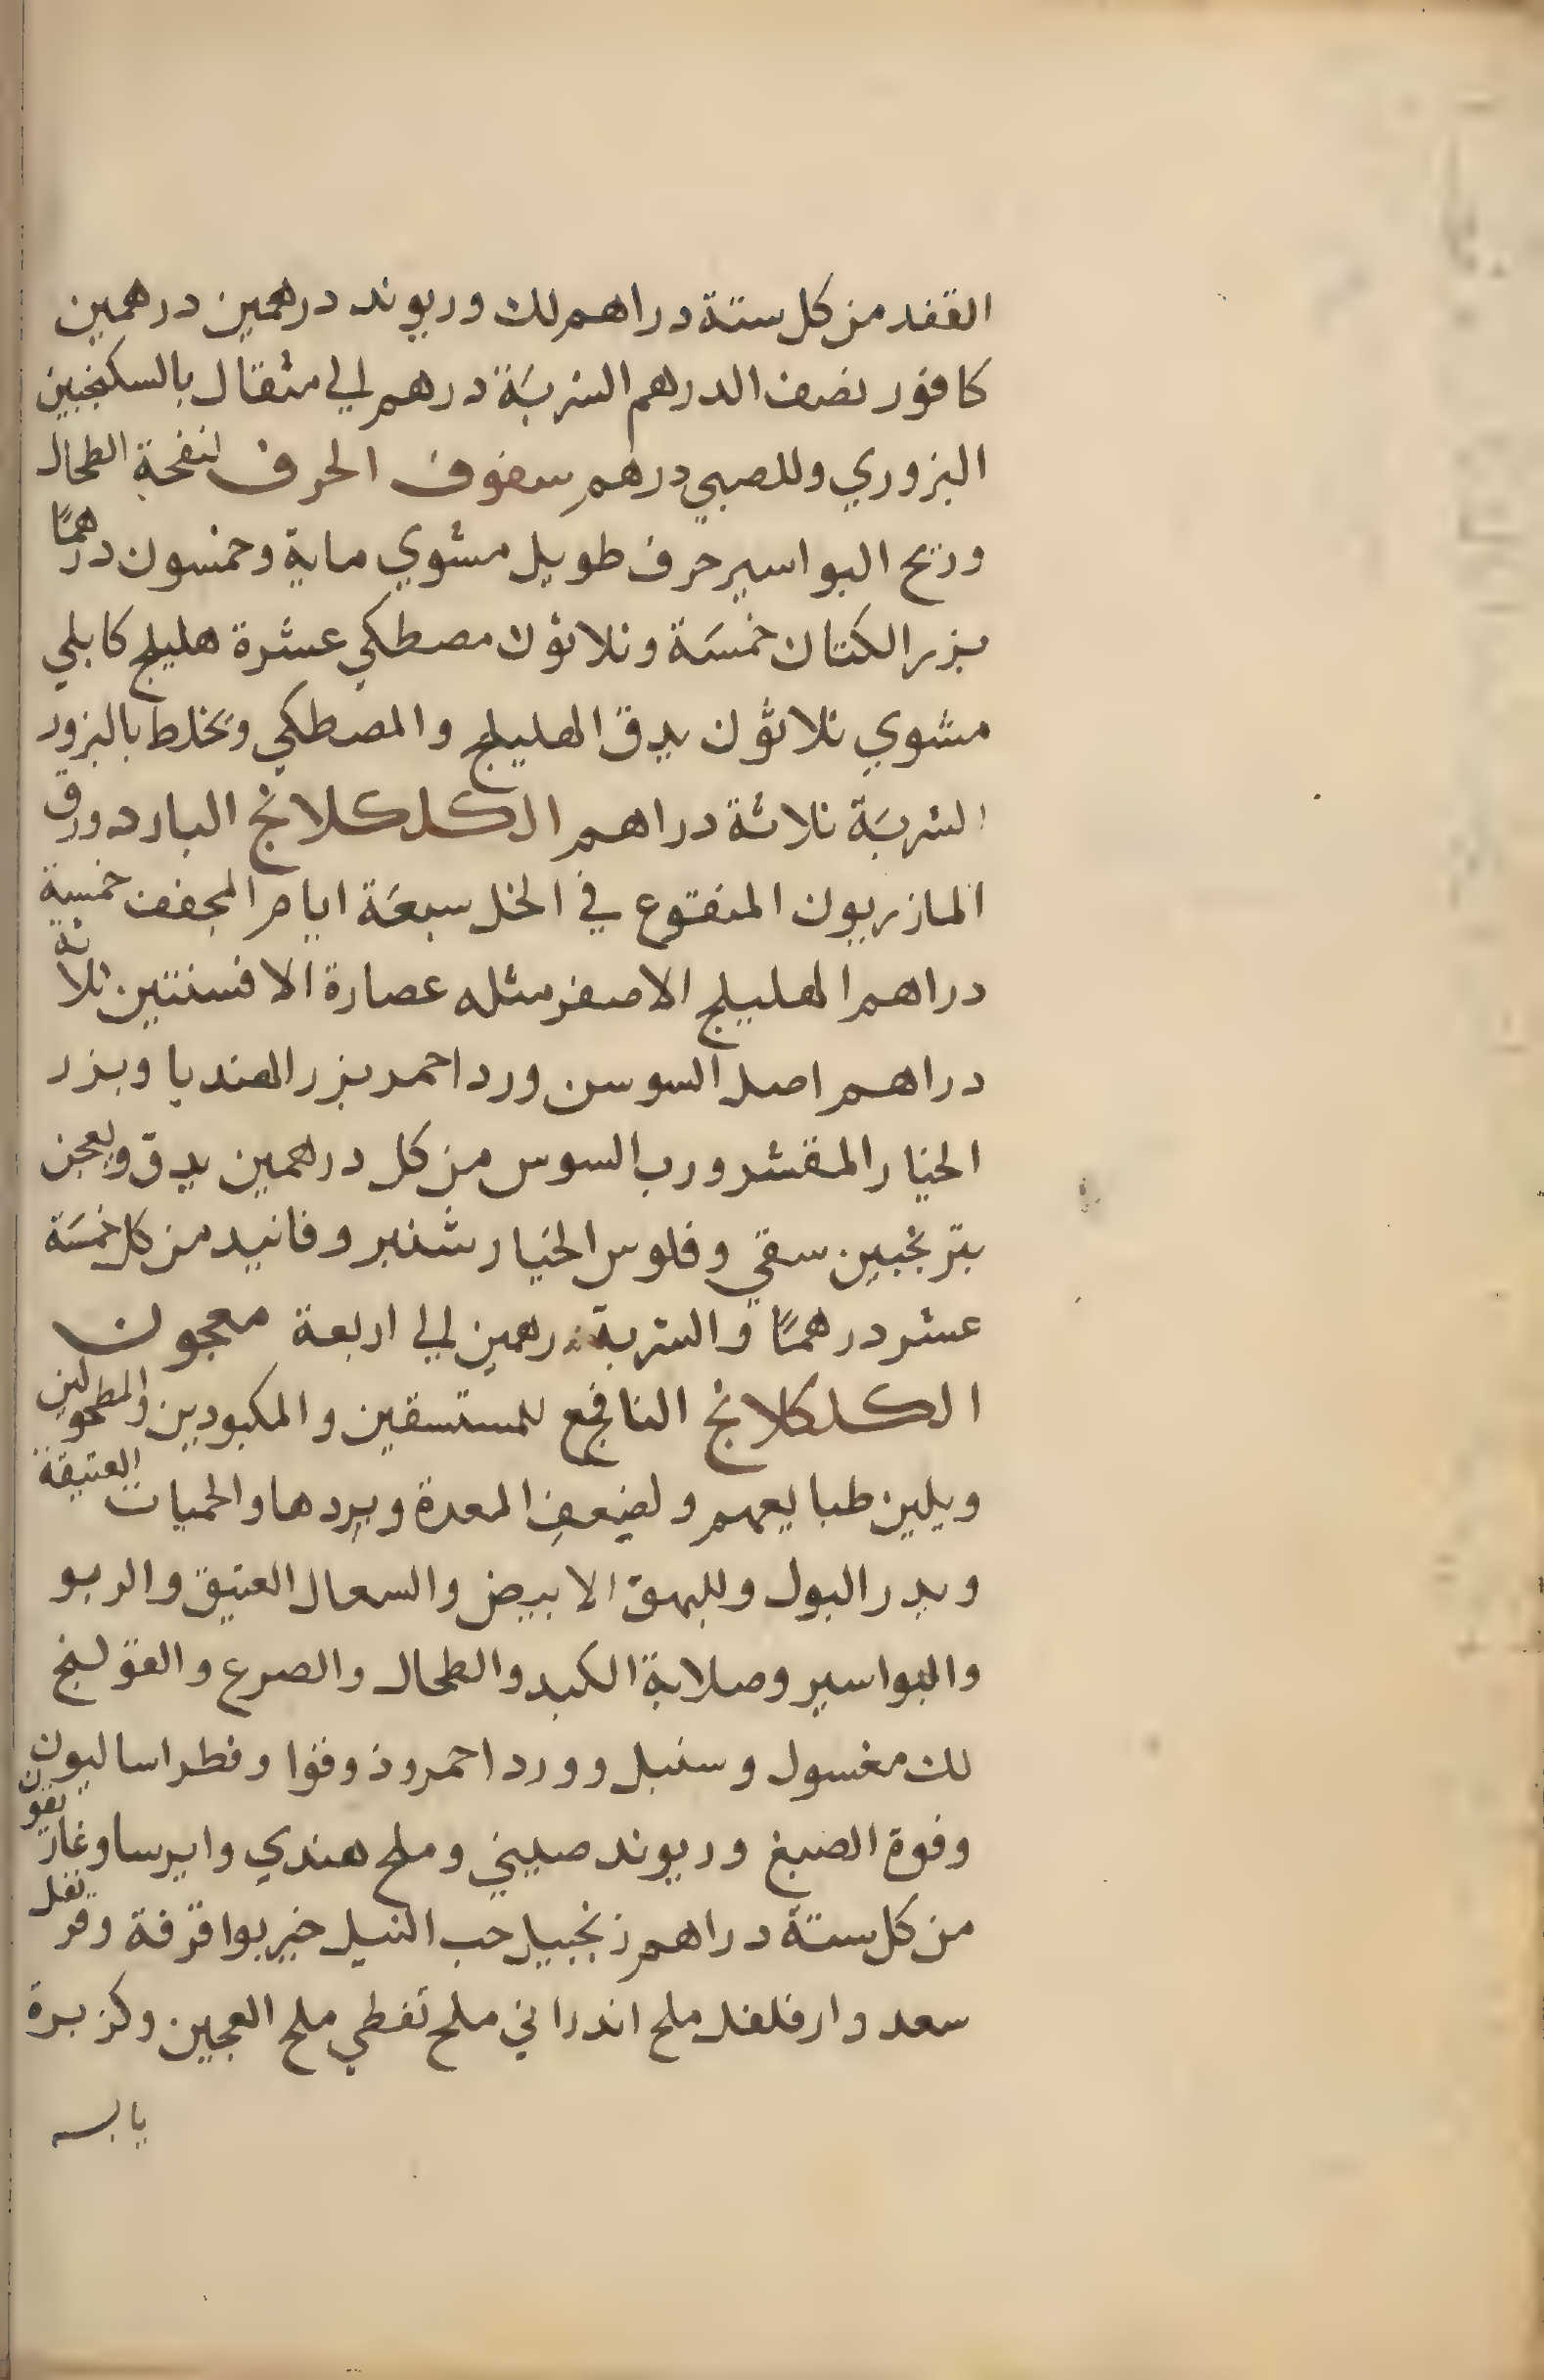 القفد من كل ستة دراهم لك وريوند درهمين درهمين
كافور نصف الدرهم الشربة درهم الي مثقال بالسكنجبين
البزوري وللصبي درهم سفوف الحرف لنفخة الطحال
وريح البواسير حرف طويل مشوي ماية وخمسون درهمًا
بزر الكتان خمسَة وثلاثون مصطكي عشرة هليلج كابلي
مشوي ثلاثون يدق الهليلج والمصطكي ويخلط بالبزور
الشربَة ثلاثة دراهم الكلكلانج البارد ورق
المازريون المنقوع في الخل سبعَة ايام المجفف خمسة
دراهم الهليلج الاصفر مثله عصارة الافسنتين ثلاثة
دراهم اصل السوسن ورد احمر بزر الهندبا وبزر
الخيار المقشر ورب السوس من كل درهمين يدق ويعجن
بترنجبين سقي وفلوس الخيار شنبر وفانيد من كل خمسَة
عشر درهمًا والشربة درهمين الي اربعة معجون
الكلكلانج النافع للمستسقين والمكبودين والمطحولين
ويلين طبايعهم ولضعف المعدة وبردها والحميات العتيقة
ويدر البول وللبهق الابيض والسعال العتيق والربو
والبواسير وصلابة الكبد والطحال والصرع والقولنج
لك مغسول وسنبل وورد احمر وذوقوا وفطراساليون
وفوة الصبغ وريوند صيني وملح هندي وايرسا وغاريقون
من كل ستة دراهم زنجبيل حب النيل خيربوا قرفة وقرنفل
سعد دارفلفل ملح اندراني ملح نفطي ملح العجين وكزبرة
يابسه